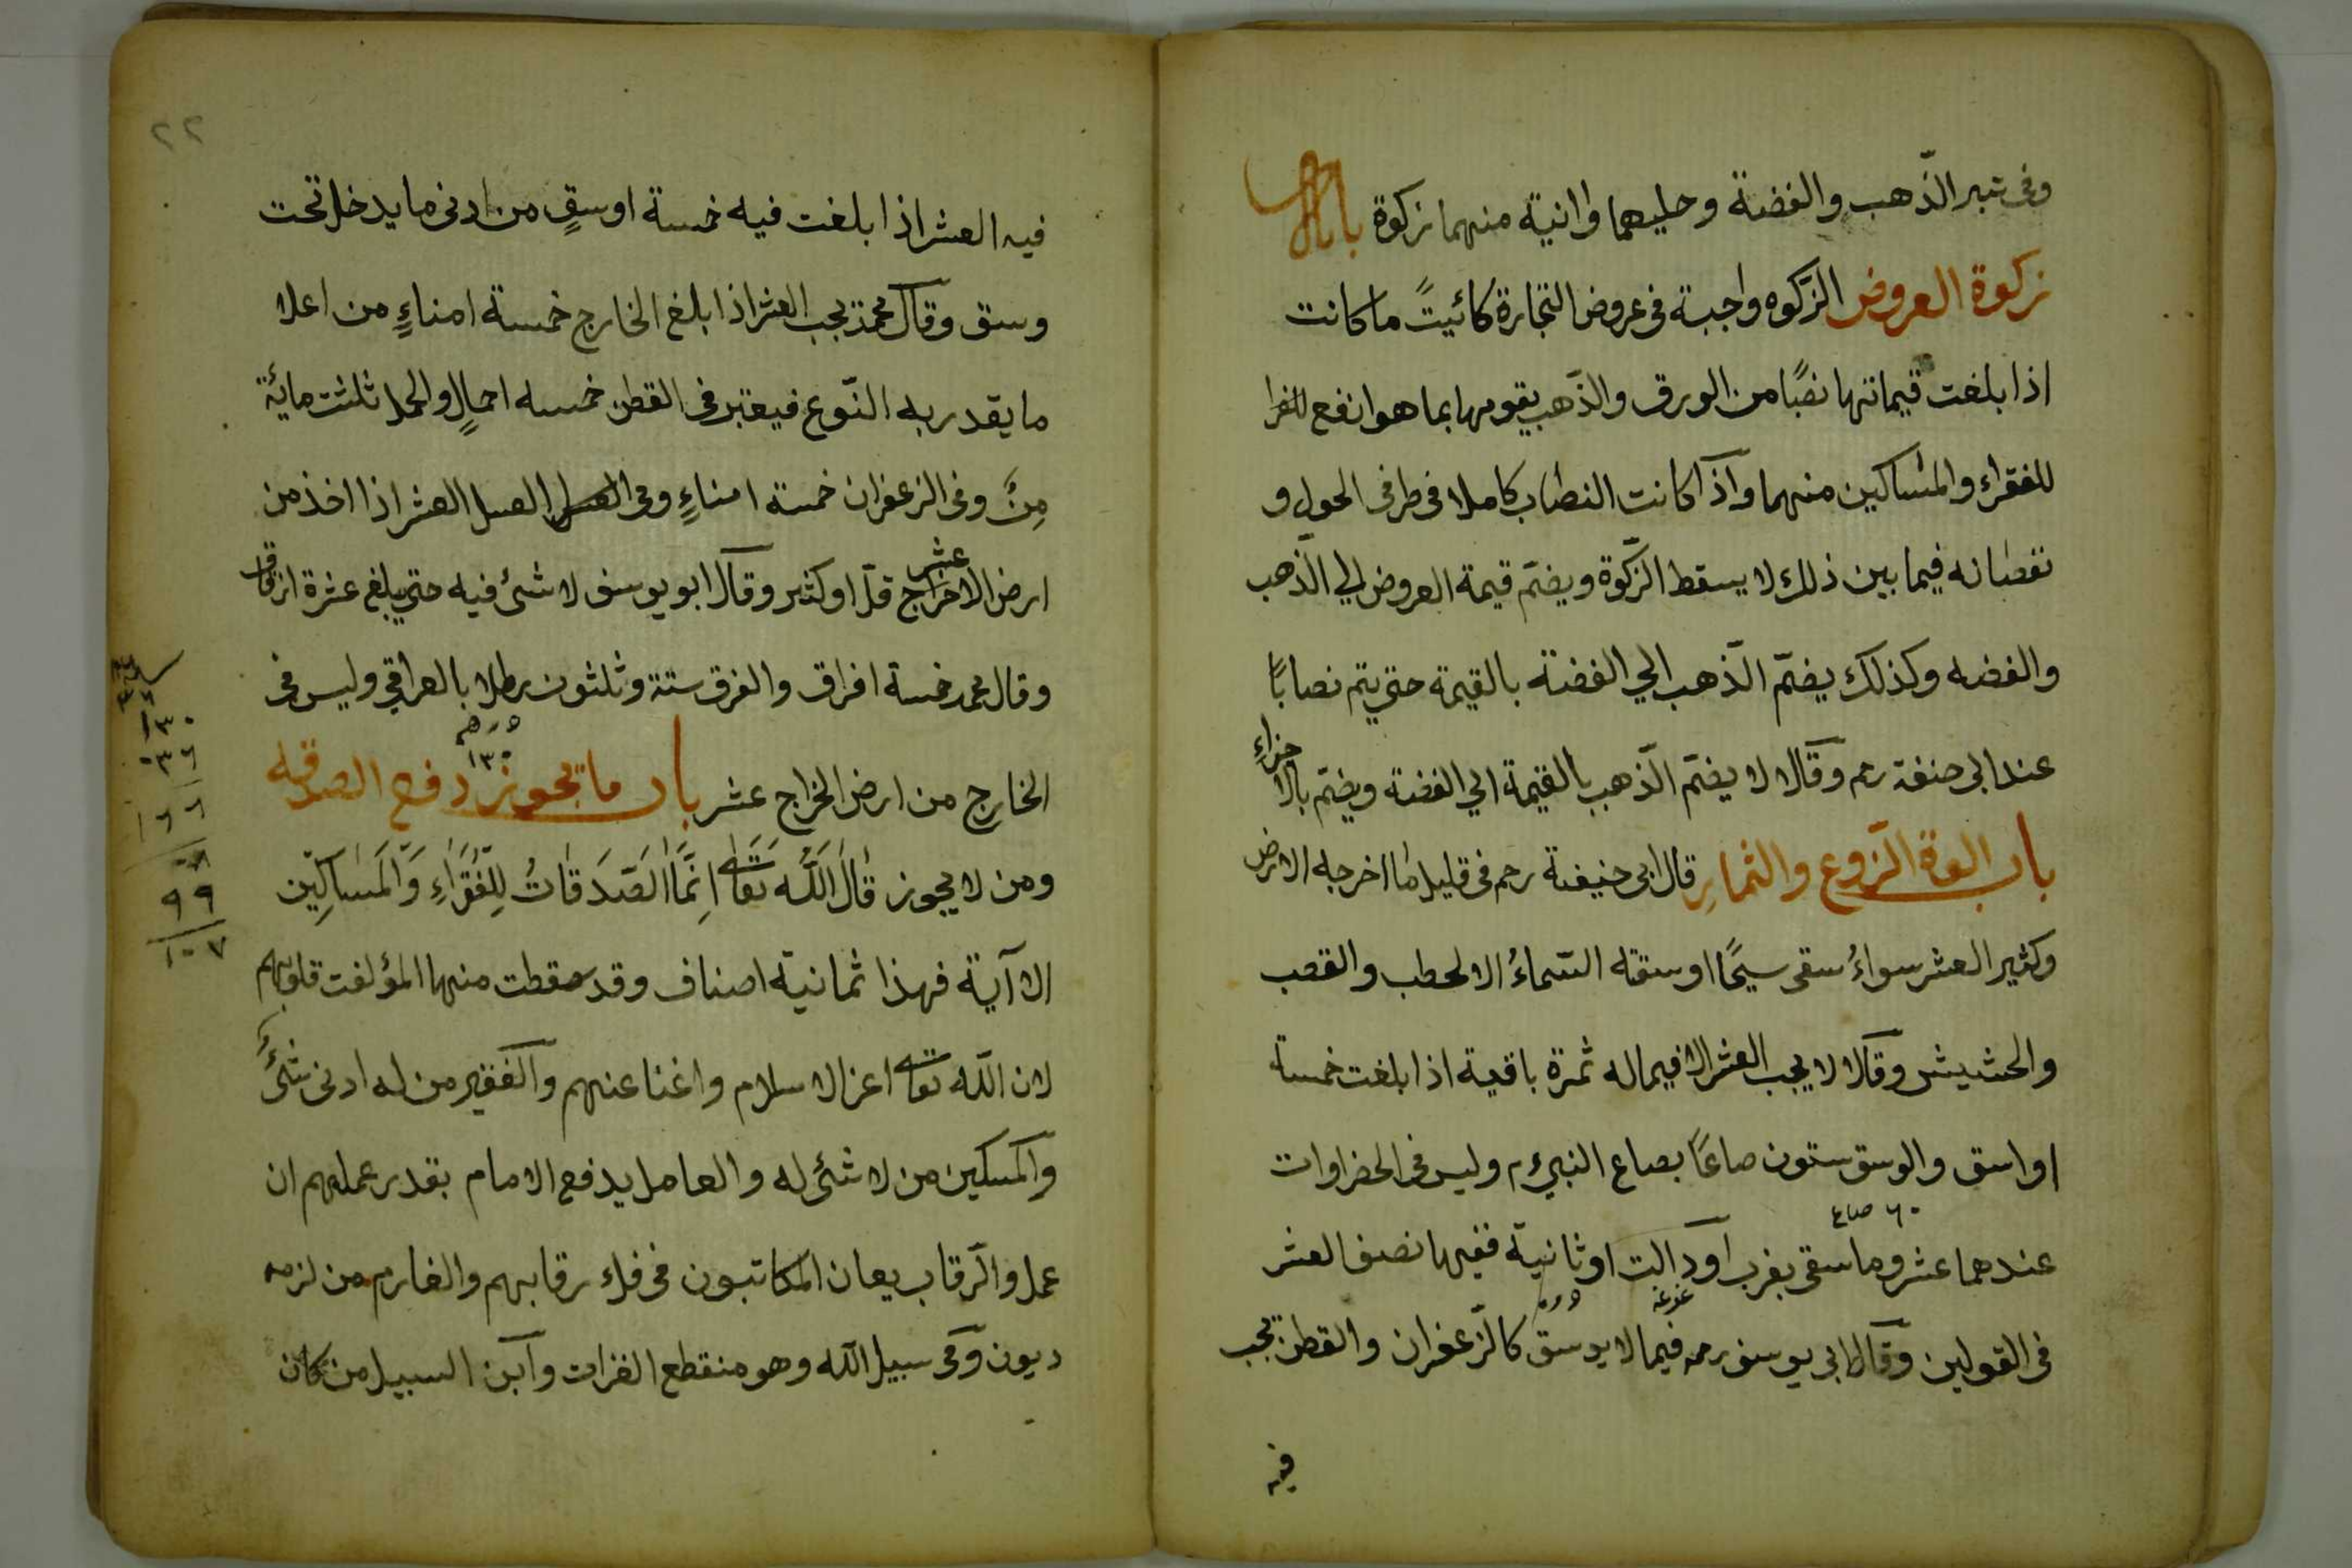 وفى تبر الذّهب والفضة وحليهما وانية منهما زكوة باب
زكوة العروض الزكوه واجبة فى عروض التجارة كائيتً ما كانت
اذا بلغت قيماتها نصبًا من الورق والذّهب يقومها بما هو انفع للفرا
للفقراء والمساكين منهما واذا كانت النصاب كاملا فى طرفى الحول و
نقصانه فيما بين ذلك لا يسقط الزّكوة ويضمّ قيمة العروض الي الذّهب
والفضه وكذلك يضمّ الذّهب الي الفضة بالقيمة حتى يتم نصابًا
عند ابى حنفة رحم وقالا لا يضمّ الذّهب بالقيمة الي الفضة ويضمّ بالا
جزاءِ
باب الزّروع والثمارِ قال ابى حنيفة رحم فى قليل ما اخرجله الارض
وكثير العشر سواءُ سقى سيحًا اوسقه السّماءُ الا لحطب والقصب
والحشيش وقالا لا يجب العشر الا فيما له ثمرة باقية اذا بلغت خمسة
اواسق والوسق ستون صاعًا بصاع النبي م وليس فى الحضراوات
٦٠ صاع
عندهما عشر وما سقى بغرب او دالت او ثانية ففيها نصف العشر
فى القولين وقال ابى يوسف رحمه فيما لا يوسق كالزّعفران والقطن يجب
فيه
٢٢
فيه العشر اذا بلغت فيه خمسة اوسقٍ من ادنى ما يدخل تحت
وسق وقال محمد يجب العشر اذا بلغ الخارج خمسة امناءٍ من اعلا
ما يقدر به النّوع فيعتبر فى القطن خمسه احمالٍ والحمل ثلثت مائة
مِنَّ وفى الزعفران خمسة امناءٍ وفى العسل العسل العشر اذا اخذ من
عشر
ارض الاخراج قلّ او كثير وقال ابو يوسف لا شئ فيه حتى يبلغ عشرة ازقاق
وقال محمد خمسة افراق والفرق ستة وثلثون رطلا بالعراقي وليس فى
درهم
١٣٠
الخارج من ارض الخراج عشر باب ما يجوز دفع الصدقه
ومن لا يجوز قَالَ اللَّه تَعَا اِنَّمَا الصَدَقَاتُ لِلْفُقَرَاءِ وَالْمَسَاكِين
الا آية فهذا ثمانية اصناف وقد سقطت منها المؤلفت قلوبهم
لان اللّه تعا اعز الاسلام واغنا عنهم والفقير من له ادنى شئً
والمسكين من لا شئ له والعامل يدفع الامام بقدر عملهم ان
عمل والرّقاب يعان المكاتبون فى فك رقابهم والغارم من لزمه
ديون وفى سبيل اللّه وهو منقطع الغزات وآبن السبيل من كان
١٣٠
٠٣٦
١٦٦
٩٩
١٠٧